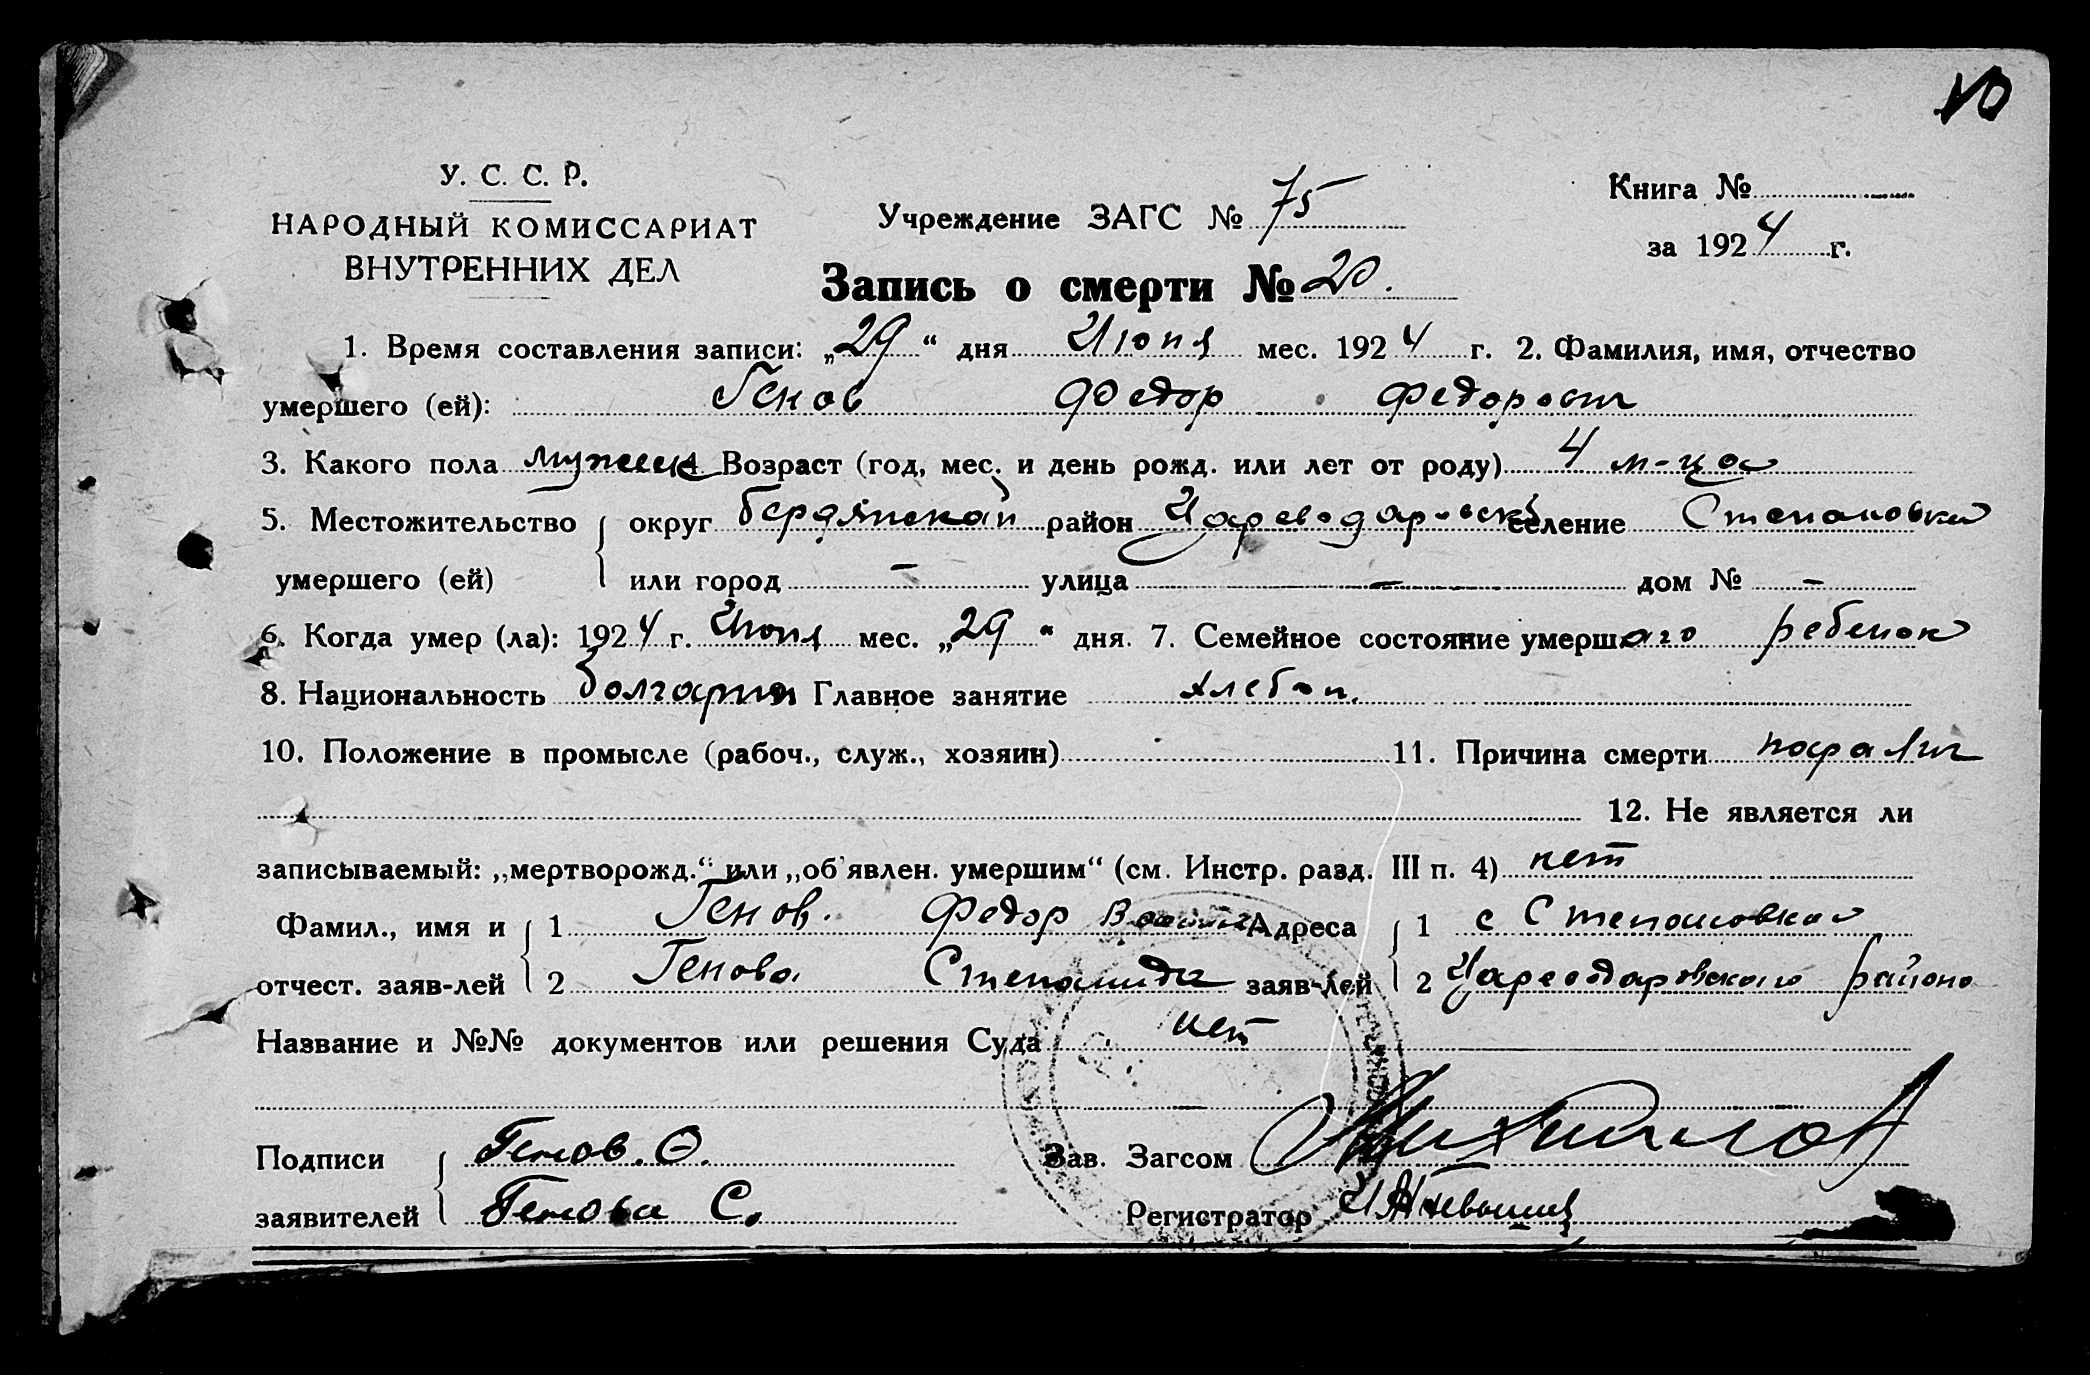 10
У. С. С. Р.
НАРОДНЫЙ КОМИССАРИАТ
ВНУТРЕННИХ ДЕЛ
Учреждение ЗАГС № 75
Книга №
за 1924 г.
Запись о смерти № 20.
1. Время составления записи: „29“ дня Июня мес. 1924 г. 2. Фамилия, имя, отчество
умершего (ей): Генов Федор
3. Какого пола Возраст (год, мес. и день рожд. или лет от роду) 4 м-ца
5. Местожительство округ Бердянский район селение Степановка
умершего (ей) или город – улица – дом № –
6. Когда умер (ла): 1924 г. Июня мес. „29“ дня. 7. Семейное состояние умершаго ребенок
8. Национальность Главное занятие хлебоп.
10. Положение в промысле (рабоч., служ., хозяин) 11. Причина смерти
12. Не является ли
записываемый: „мертворожд.“ или „об'явлен. умершим“ (см. Инстр. разд. III п. 4) нет
Фамил., имя и 1 Генов. Федор Адреса 1 с Степановка
отчест. заяв-лей 2 Генова Степанида заяв-лей 2 района
Название и №№ документов или решения Суда нет
Подписи Генов. Ѳ. Зав. Загсом
заявителей Генова С. Регистратор